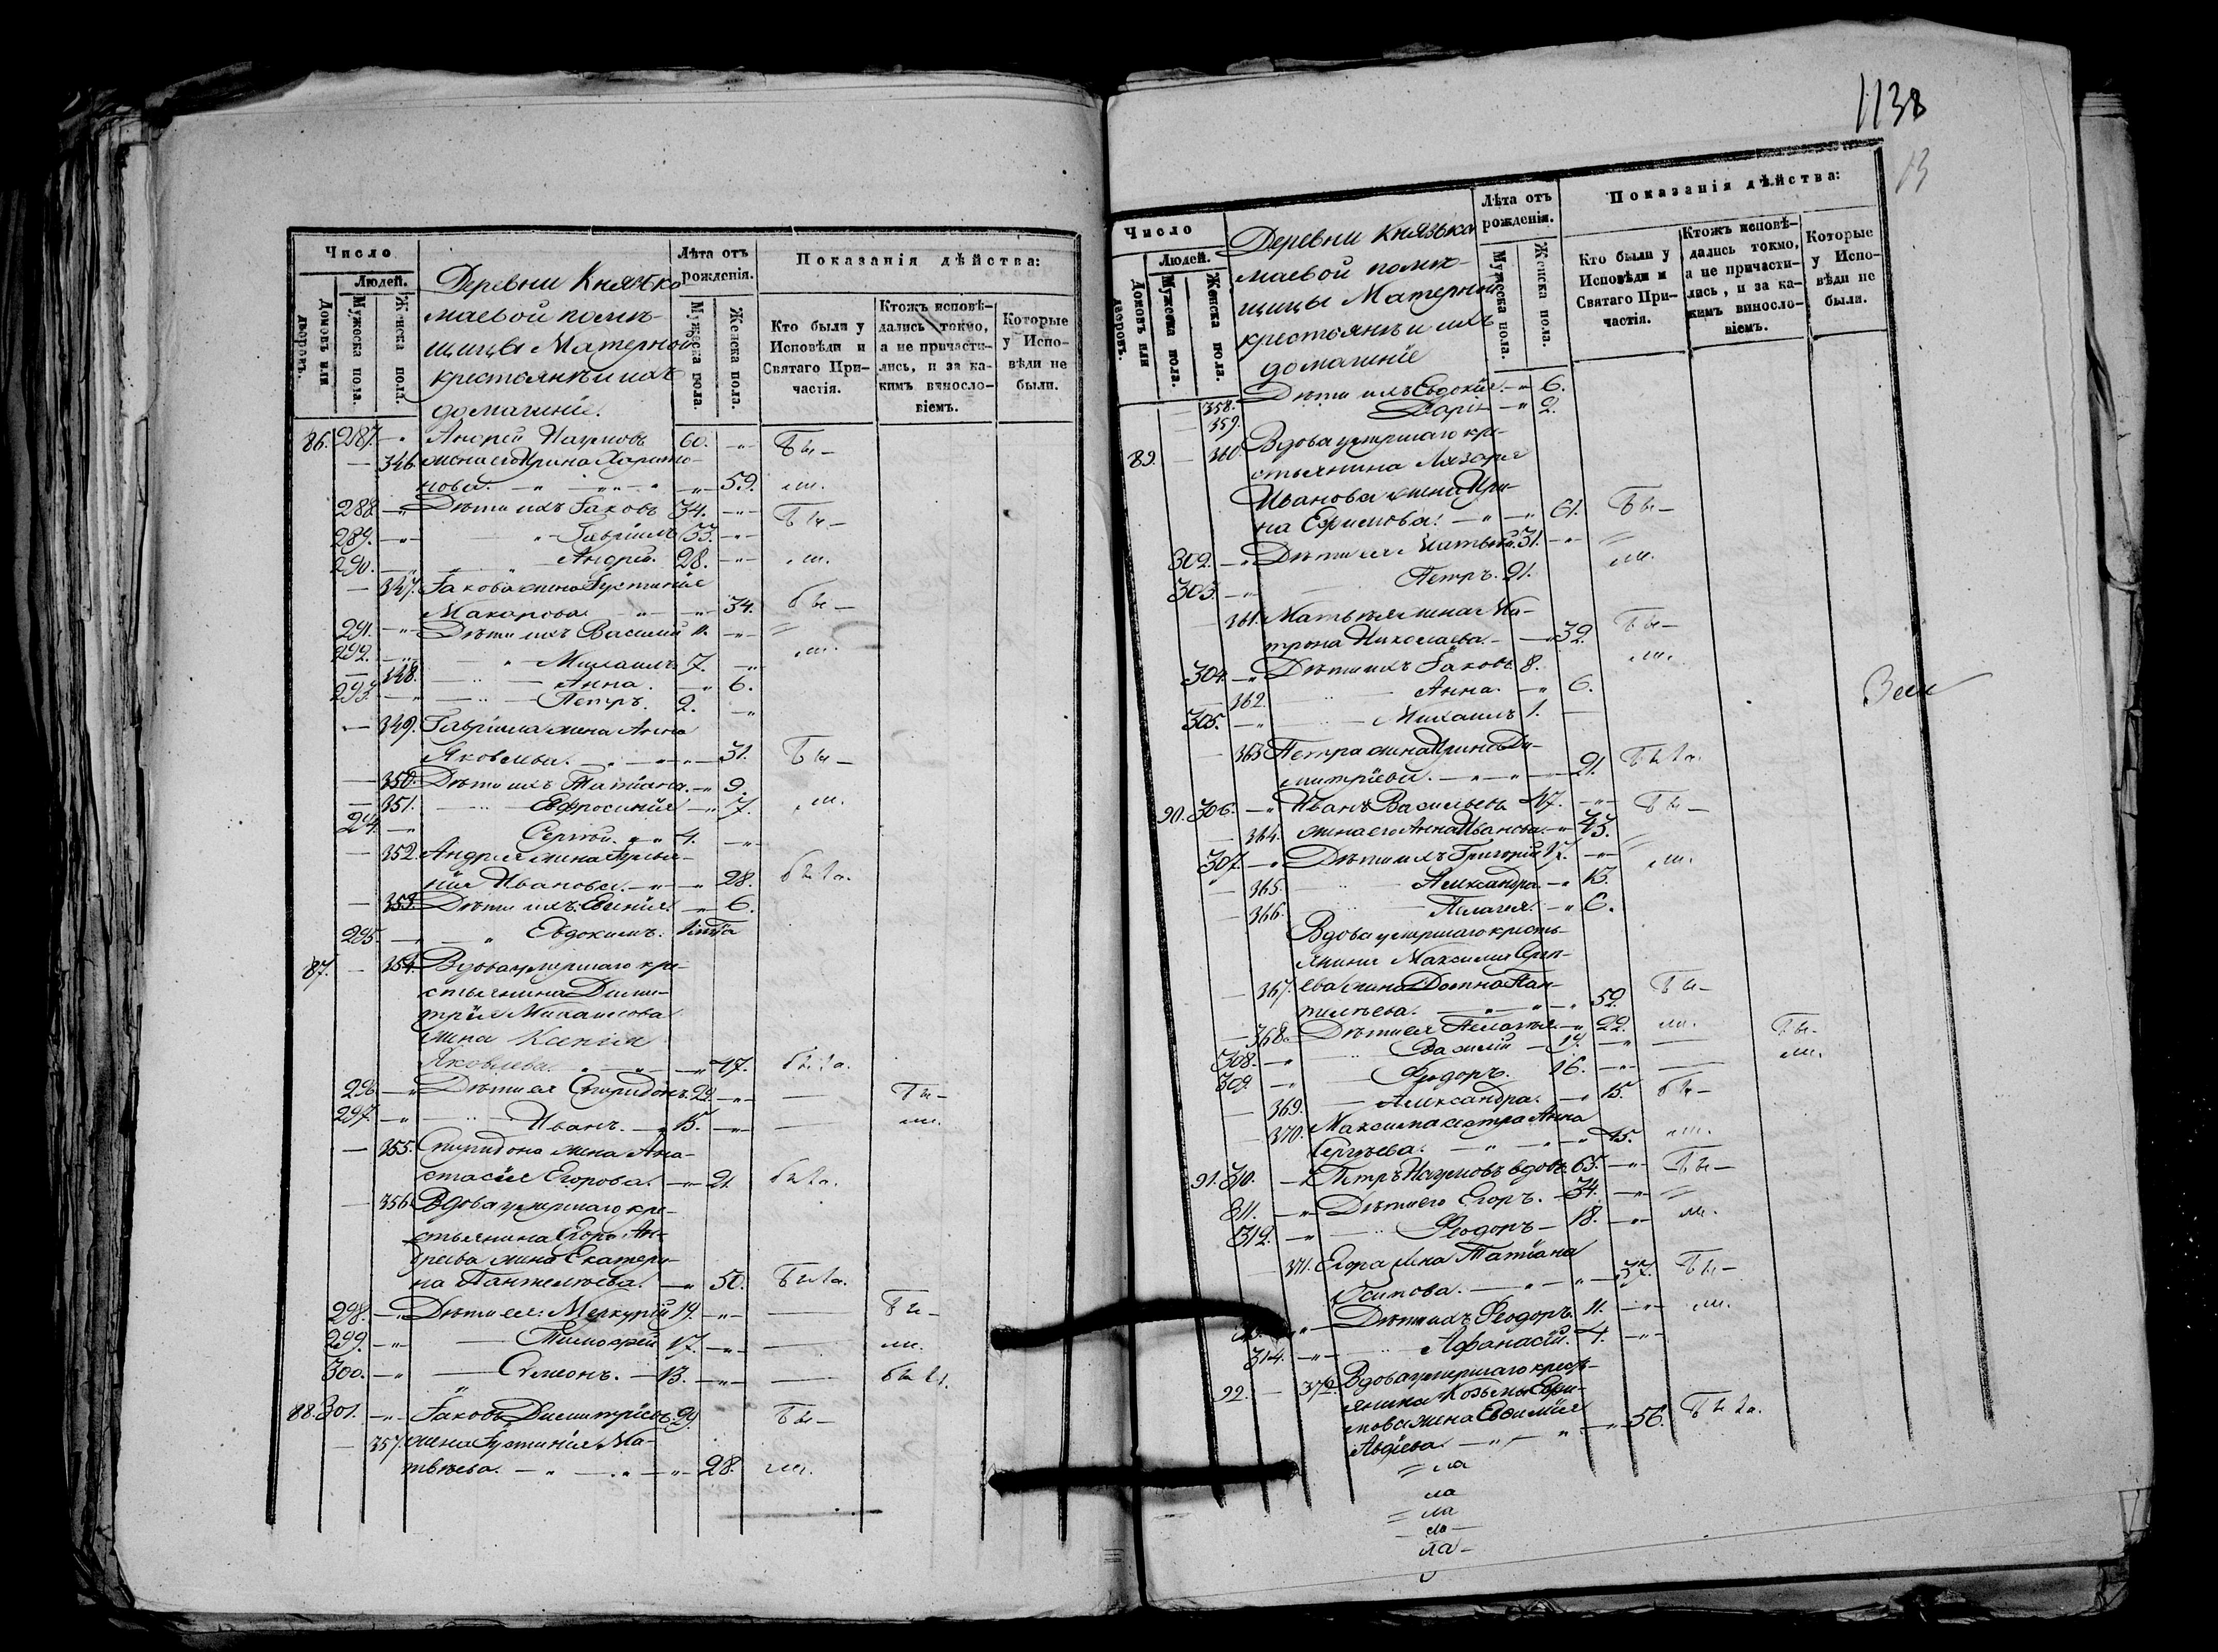 Число
Людей.
Домовъ или дворовъ.
Мужеска пола.
Женска пола.
Деревни Князько
маевой помѣ-
щицы Матерной
крестьянѣ и ихъ
домашніе.
Лѣта отъ рожденія.
Мужеска пола.
Женска пола.
Показанія дѣйства:
Кто были у Исповѣди и Святаго Причастія.
Ктожъ исповѣ-дались токмо, а не причасти-лись, и за ка-кимъ винословіемъ.
Которые у Испо-вѣди не были.
86. 287. Андрей Наумовъ 60. бы-
346. жена его Ирина Харито-
нова. 59. ли.
288. Дѣти ихъ Іаковъ 34. бы-
289. Гавріилъ 33.
290. Андрей. 28. ли.
347. Іакова жена Іустинія
Макарова 34. бы-
291. Дѣти ихъ Василій 11.
292. Михаилъ 7. ли.
348. Анна. 6.
293. Петръ. 2.
349. Гавріила жена Анна
Яковлева. 31. бы-
350. Дѣти ихъ Татіана. 9.
351. Евфросинія 7. ли.
294. Сергѣй. 4.
352. Андрея жена
Иванова. 28. была.
353. Дѣти ихъ: 6.
295. Евдокимъ.
87. 354. Вдова умершаго кре-
стьянина Дими-
трія Михаилова
жена Ксенія
Яковлева. 47. была.
296. Дѣти ея Спиридонъ. 22. бы-
297. Иванъ. 15. ли.
355. Спиридона жена Ана-
стасія Егорова. 21. была.
356. Вдова умершаго кре-
стьянина Егора Ан-
дреева жена Екатери-
на Пантелѣева. 50. была.
298. Дѣти ея: Меркурій 19. бы-
299. Тимофей 17. ли.
300. Симеонъ. 13.
88. 301. Іаковъ Димитріевъ 29. бы-
357. жена Іустинія Ма-
твѣева. 28. ли.
1138
13
Число
Людей.
Домовъ или дворовъ.
Мужеска пола.
Женска пола.
Деревни Князька
маевой помѣ-
щицы Матерной
крестьянѣ и ихъ
домашніе
Лѣта отъ рожденія.
Мужеска пола.
Женска пола.
Показанія дѣйства:
Кто были у Исповѣди и Святаго При-частія.
Ктожъ исповѣ-дались токмо, а не причасти-лись, и за ка-кимъ винословіемъ.
Которые у Испо-вѣди не были.
358. Дѣти ихъ Евдокія. 6.
359. Дарія 2.
89. 360 Вдова умершаго кре-
стьянина Лазаря
Иванова жена Ири-
на Ефимова. 61. бы-
302. Дѣти ея Матвѣй. 31.
303. Петръ. 21. ли.
361. Матвѣя жена Ма-
трона Николаева. 32. бы-
304. Дѣти ихъ Іаковъ 8. ли.
362. Анна. 6.
305. Михаилъ 1.
363 Петра жена Ирина Ди-
митріева. 21. была.
90. 306. Иванъ Васильевъ 47. бы-
364. жена его Анна Иванова. 43.
307. Дѣти ихъ Григорій 17. ли.
365. Александра. 13.
366. Пелагея. 6.
Вдова умершаго кресть-
янина Максима Серг-
367. ева жена Домна Пан-
телѣева. 52. бы-
368. Дѣти ея Пелагея 22. ли.
308. Василій 19. бы-
309. Ѳедоръ. 16. ли.
369. Александра. 15. бы-
370. Максима сестра Анна
Сергѣева. 45. ли.
91. 310. Петръ Наумовъ вдовъ. 65. бы-
311. Дѣти его Егоръ. 34.
312. Ѳеодоръ 18. ли.
371. Егора жена Татіана
Осипова. 37. бы-
Дѣти ихъ Ѳеодоръ. 11. ли.
314. Афанасій. 4.
92. 372. Вдова умершаго кресть-
янина Козьмы Ефи-
мова жена Евфимія
Авдіева. 56. была.
ла
ла
ла
ла
ла-